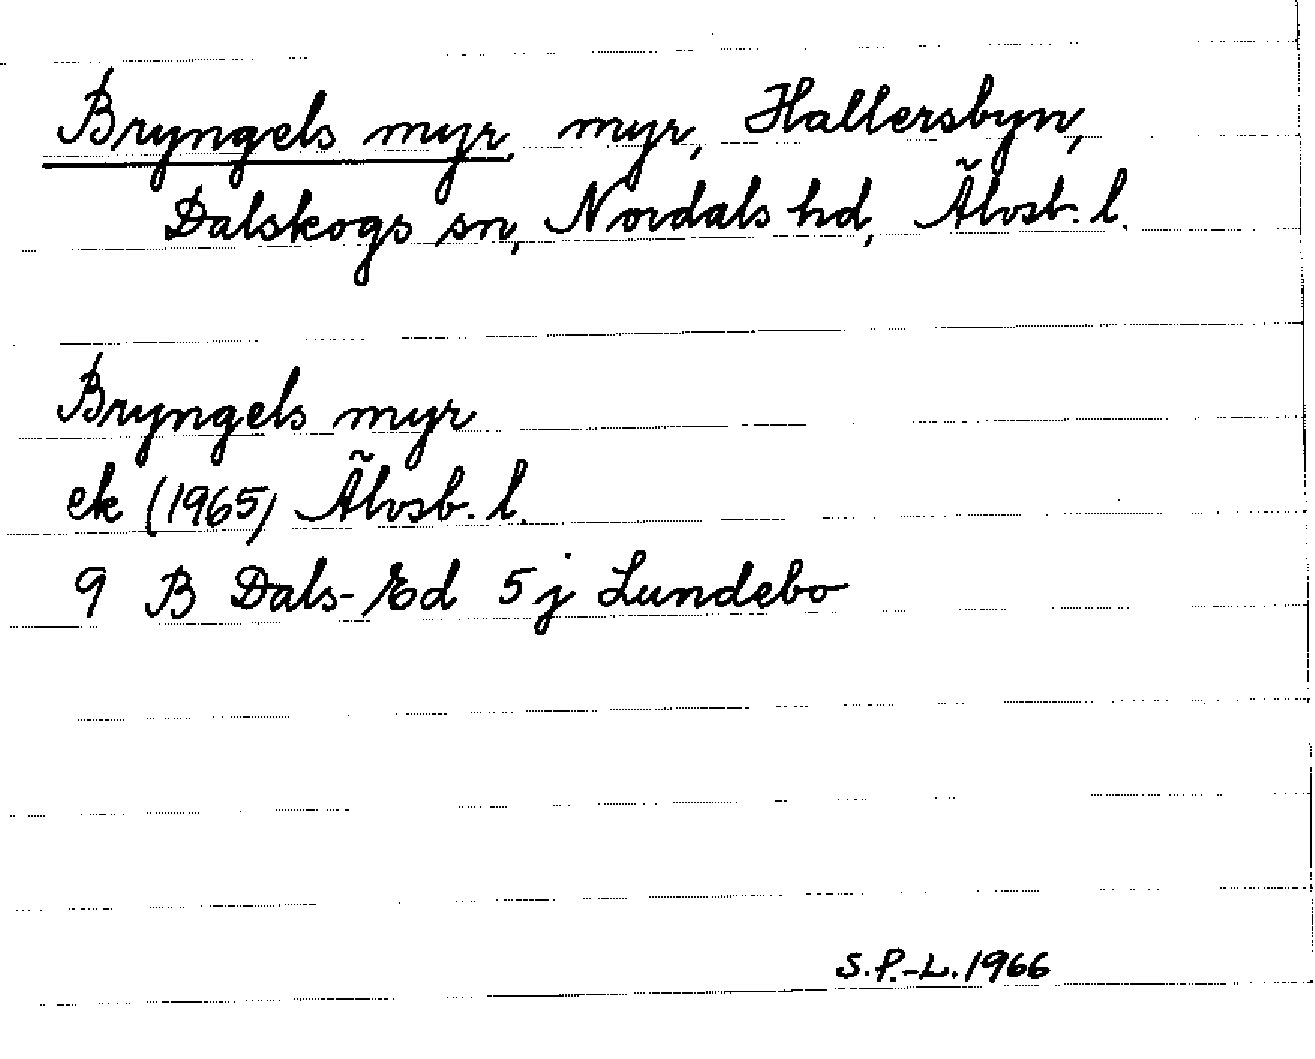 Bryngels myr, myr, Hallersbyn,
Dalskogs sn, Nordals hd, Älvsb. l.
Bryngels myr
ek (1965) Älvsb. l.
9 B Dals-Ed 5j Lundebo
S.P.-L. 1966